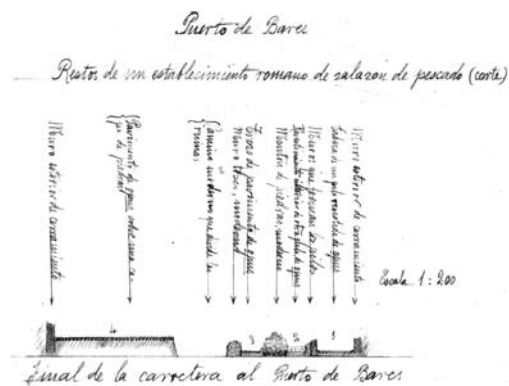 Puerto de Bares
Restos de un establecimiento romano de salazon de pescado (corte)
Muro exterior de cerramiento
Pavimento de opus sobre una ca
pa de piedras
Camino moderno que divide las
ruinas
Muro tosco, moderno
Trozo de pavimento de opus
Monton de piedras, moderno
Revestimiento interior de otra pileta de opus
Muros que forman las piletas
de una pileta revestida de opus
Muro exterior de cerramiento
Escala 1:200
4
3
2
1
Final de la carretera al Puerto de Bares